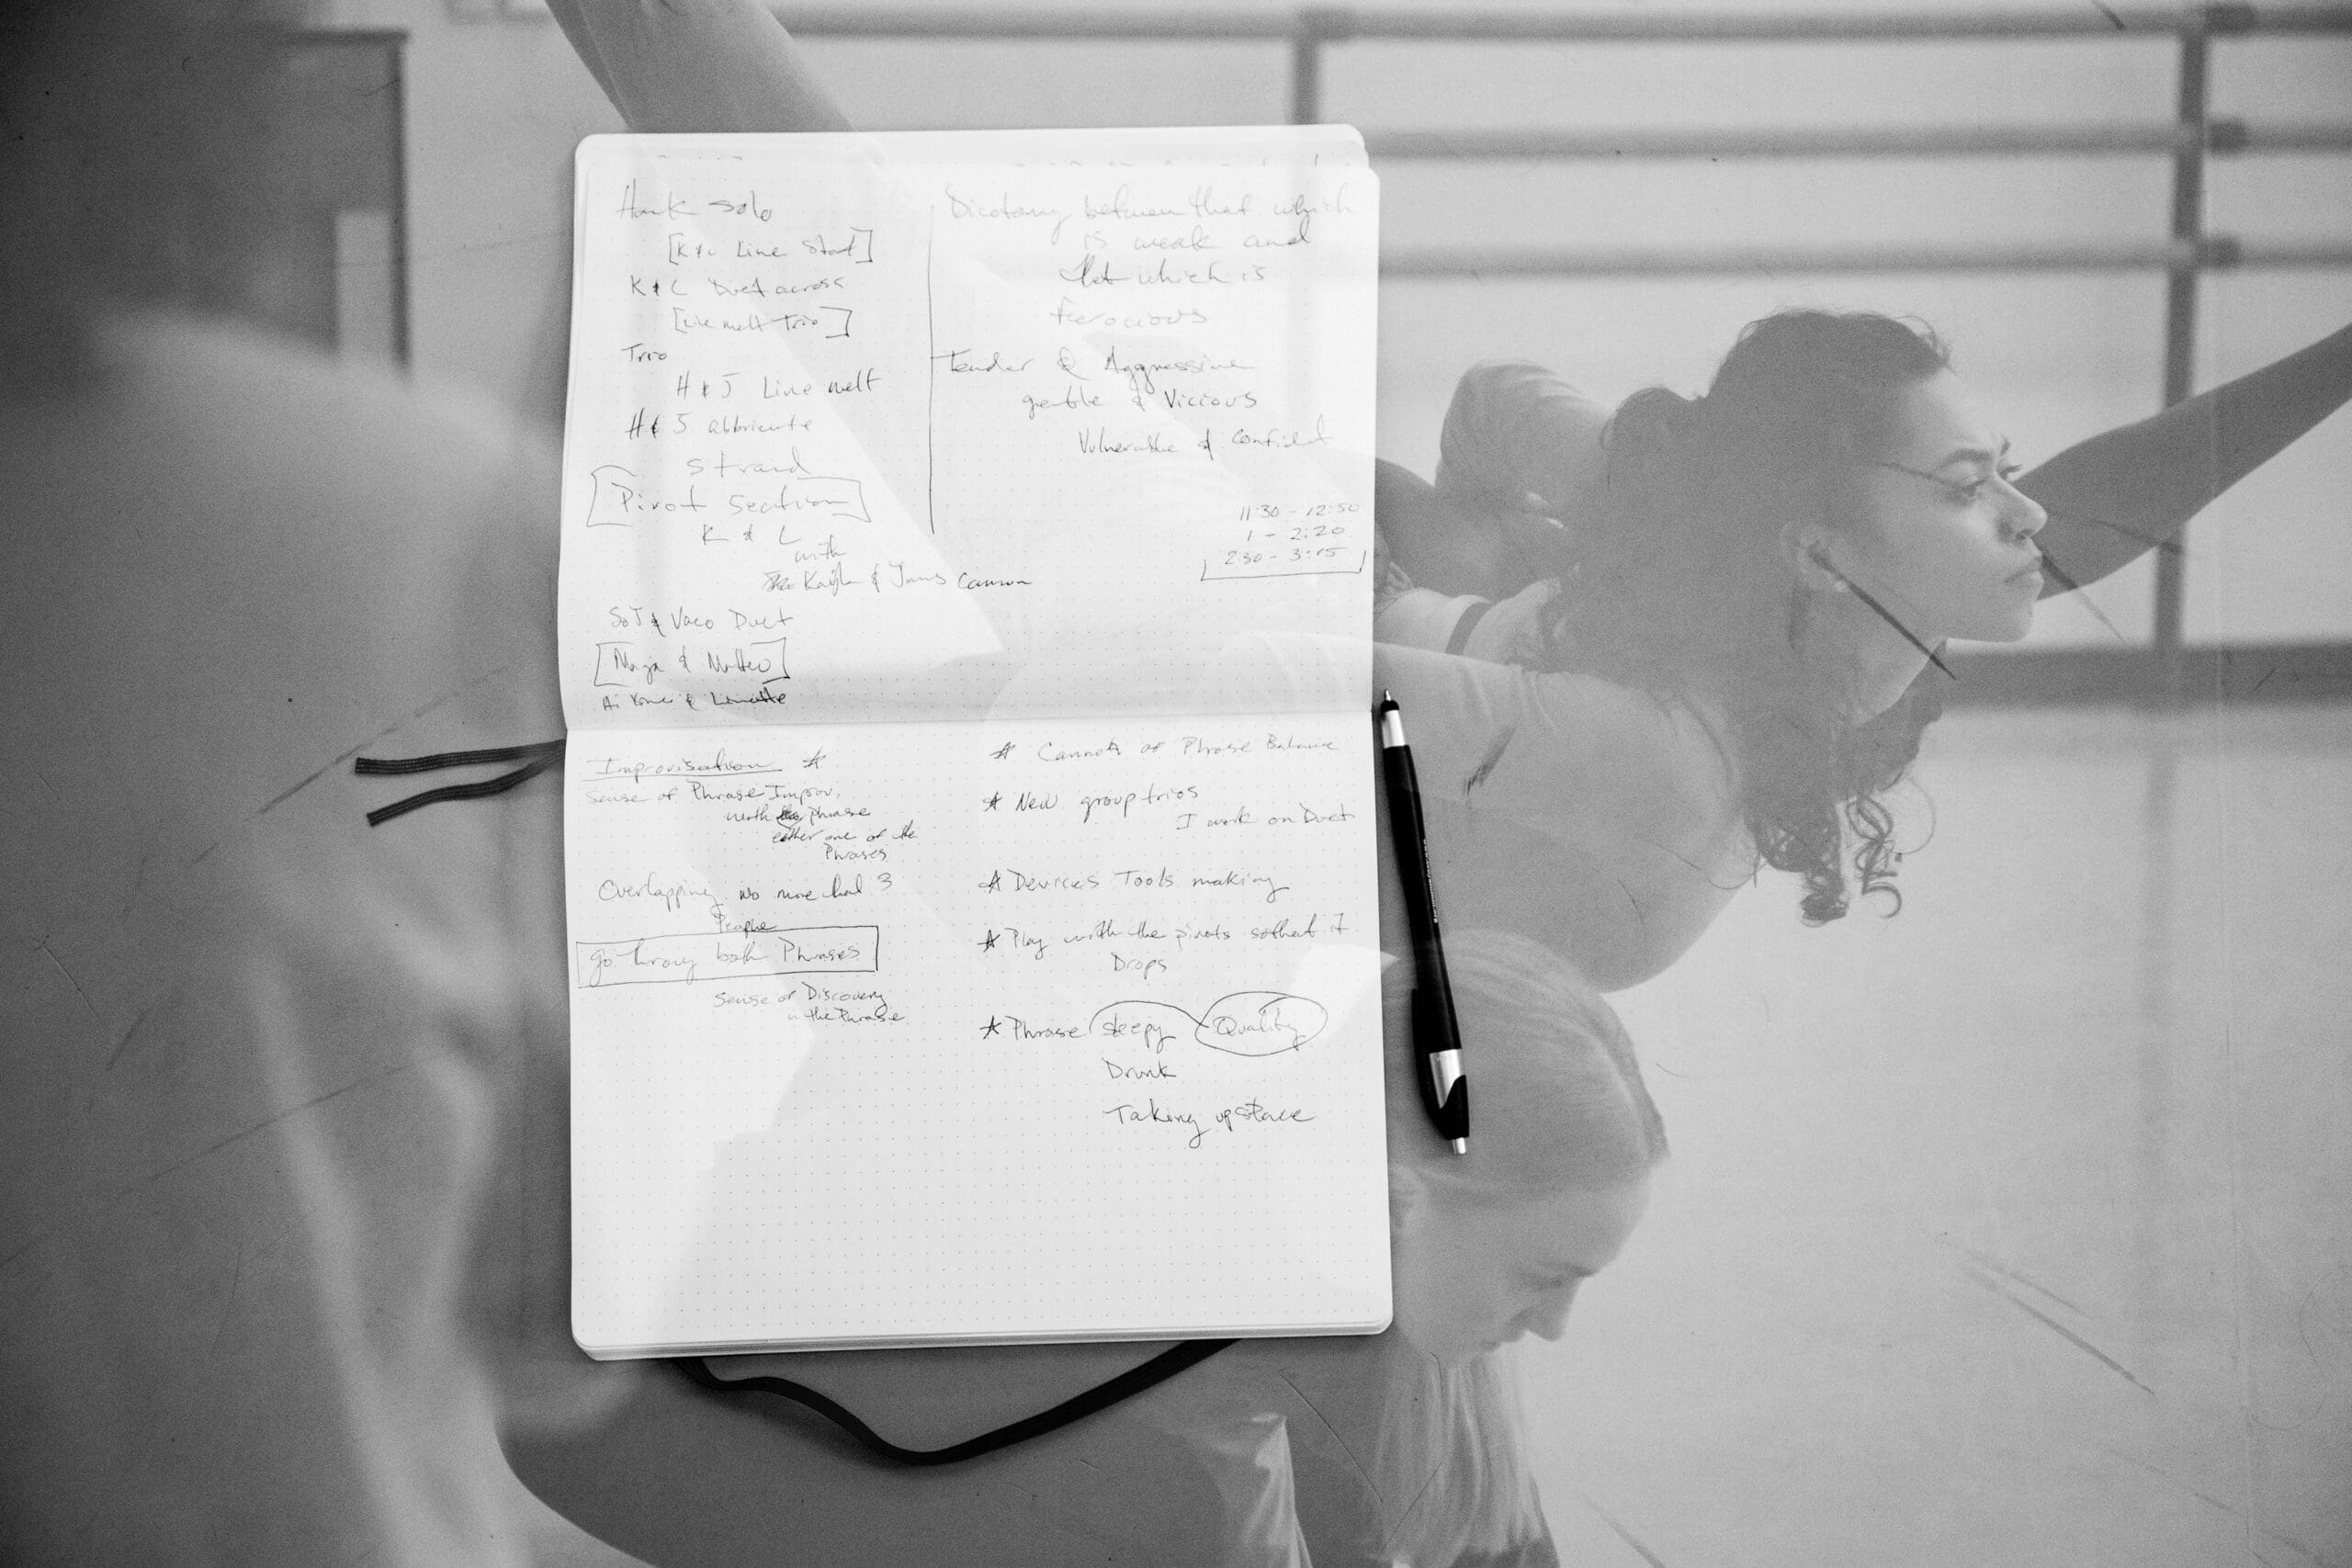 Hank solo
[K & L Line Start]
K & L Duet across
[Line melt Trio]
Trio
H & J Line melt
H & J
strand
Pivot Section
K & L
with
& Canon
Duet
Maja & Matteo
&
Dicotomy between that which
is weak and
that which is
ferocious
Tender & Aggressive
gentle & Vicious
Vulnerable & confident
11:30 - 12:50
1 - 2:20
2:30 - 3:15
Improvisation
Sense of Phrase Improv.
with phrase
either one of the
Phrases
Overlapping no more that 3
People
go throug both Phrases
Sense of Discovery
in the Phrase
of Phrase Balance
New group trios
I work on Duet
Devices Tools making
Play with the pivots so that it
Drops
Phrase sleepy Quality
Drunk
Taking up space